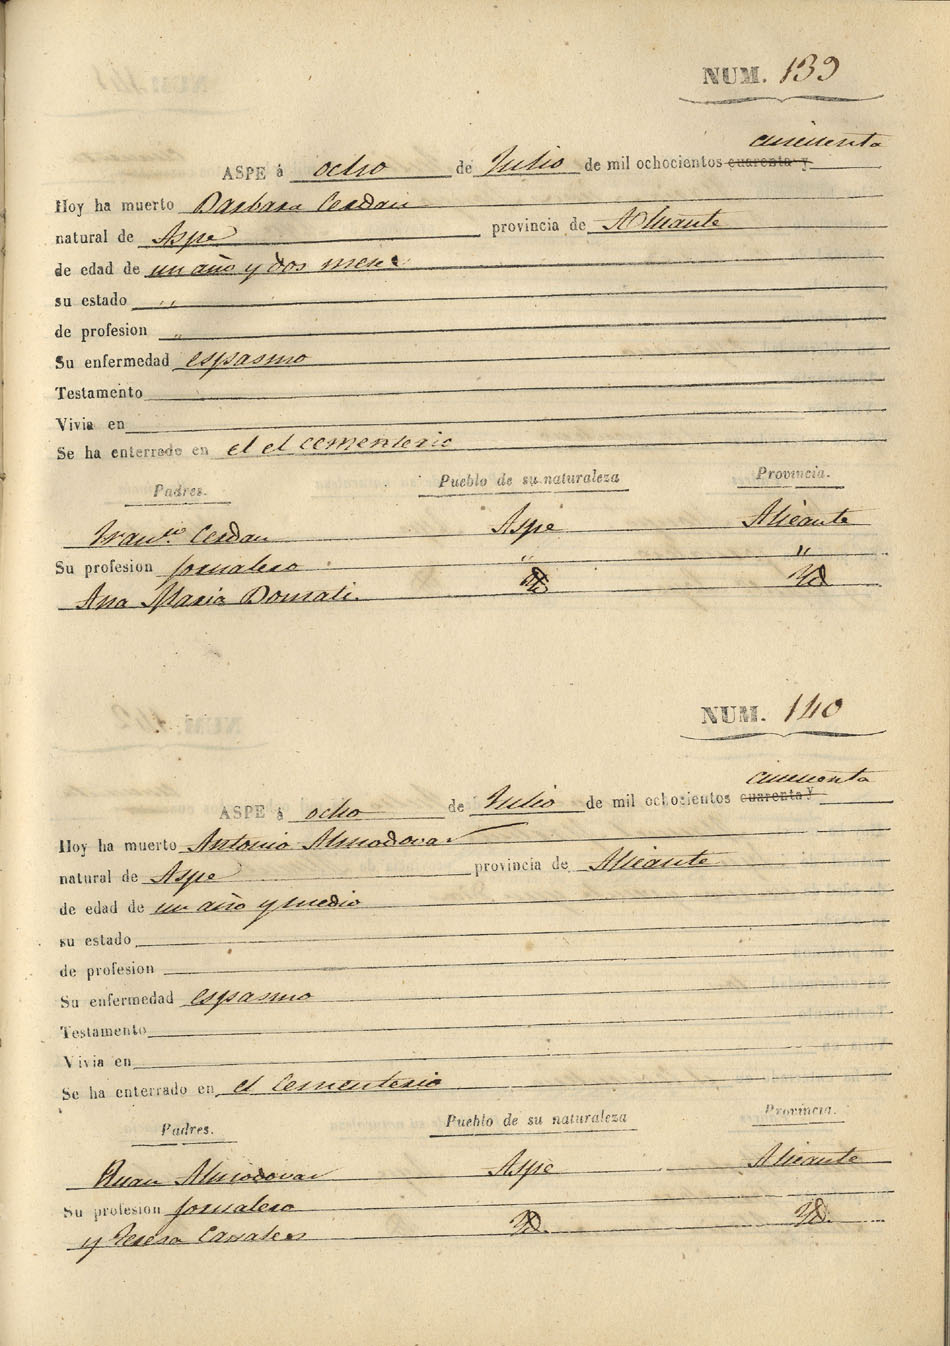 NUM. 139
cincuenta
ASPE á ocho de Julio de mil ochocientos cuarenta y
Hoy ha muerto Barbara Cerdan
natural de Aspe provincia de Alicante
de edad de un año y dos mese
su estado "
de profesion "
Su enfermedad espasmo
Testamento
Vivia en
Se ha enterrado en el el cementerio
Padres. Pueblo de su naturaleza Provincia.
Fran.co Cerdan Aspe Alicante
Su profesion jornalero " "
Ana Maria Yd Yd
NUM. 140
cincuenta
ASPE á ocho de Julio de mil ochocientos cuarenta y
Hoy ha muerto Antonio Almodovar
natural de Aspe provincia de Alicante
de edad de un año y medio
su estado
de profesion
Su enfermedad espasmo
Testamento
Vivia en
Se ha enterrado en el Cementerio
Padres. Pueblo de su naturaleza Provincia.
Juan Almodovar Aspe Alicante
Su profesion jornalero
y Teresa Yd. Yd.